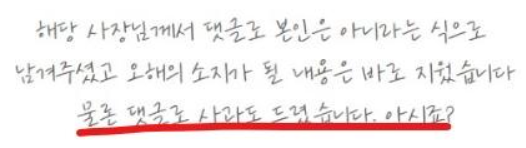 해당 사장님께서 댓글로 본인은 아니라는 식으로
남겨주셨고 오해의 소지가 될 내용은 바로 지웠습니다
물론 댓글로 사과도 드렸습니다. 아시죠?